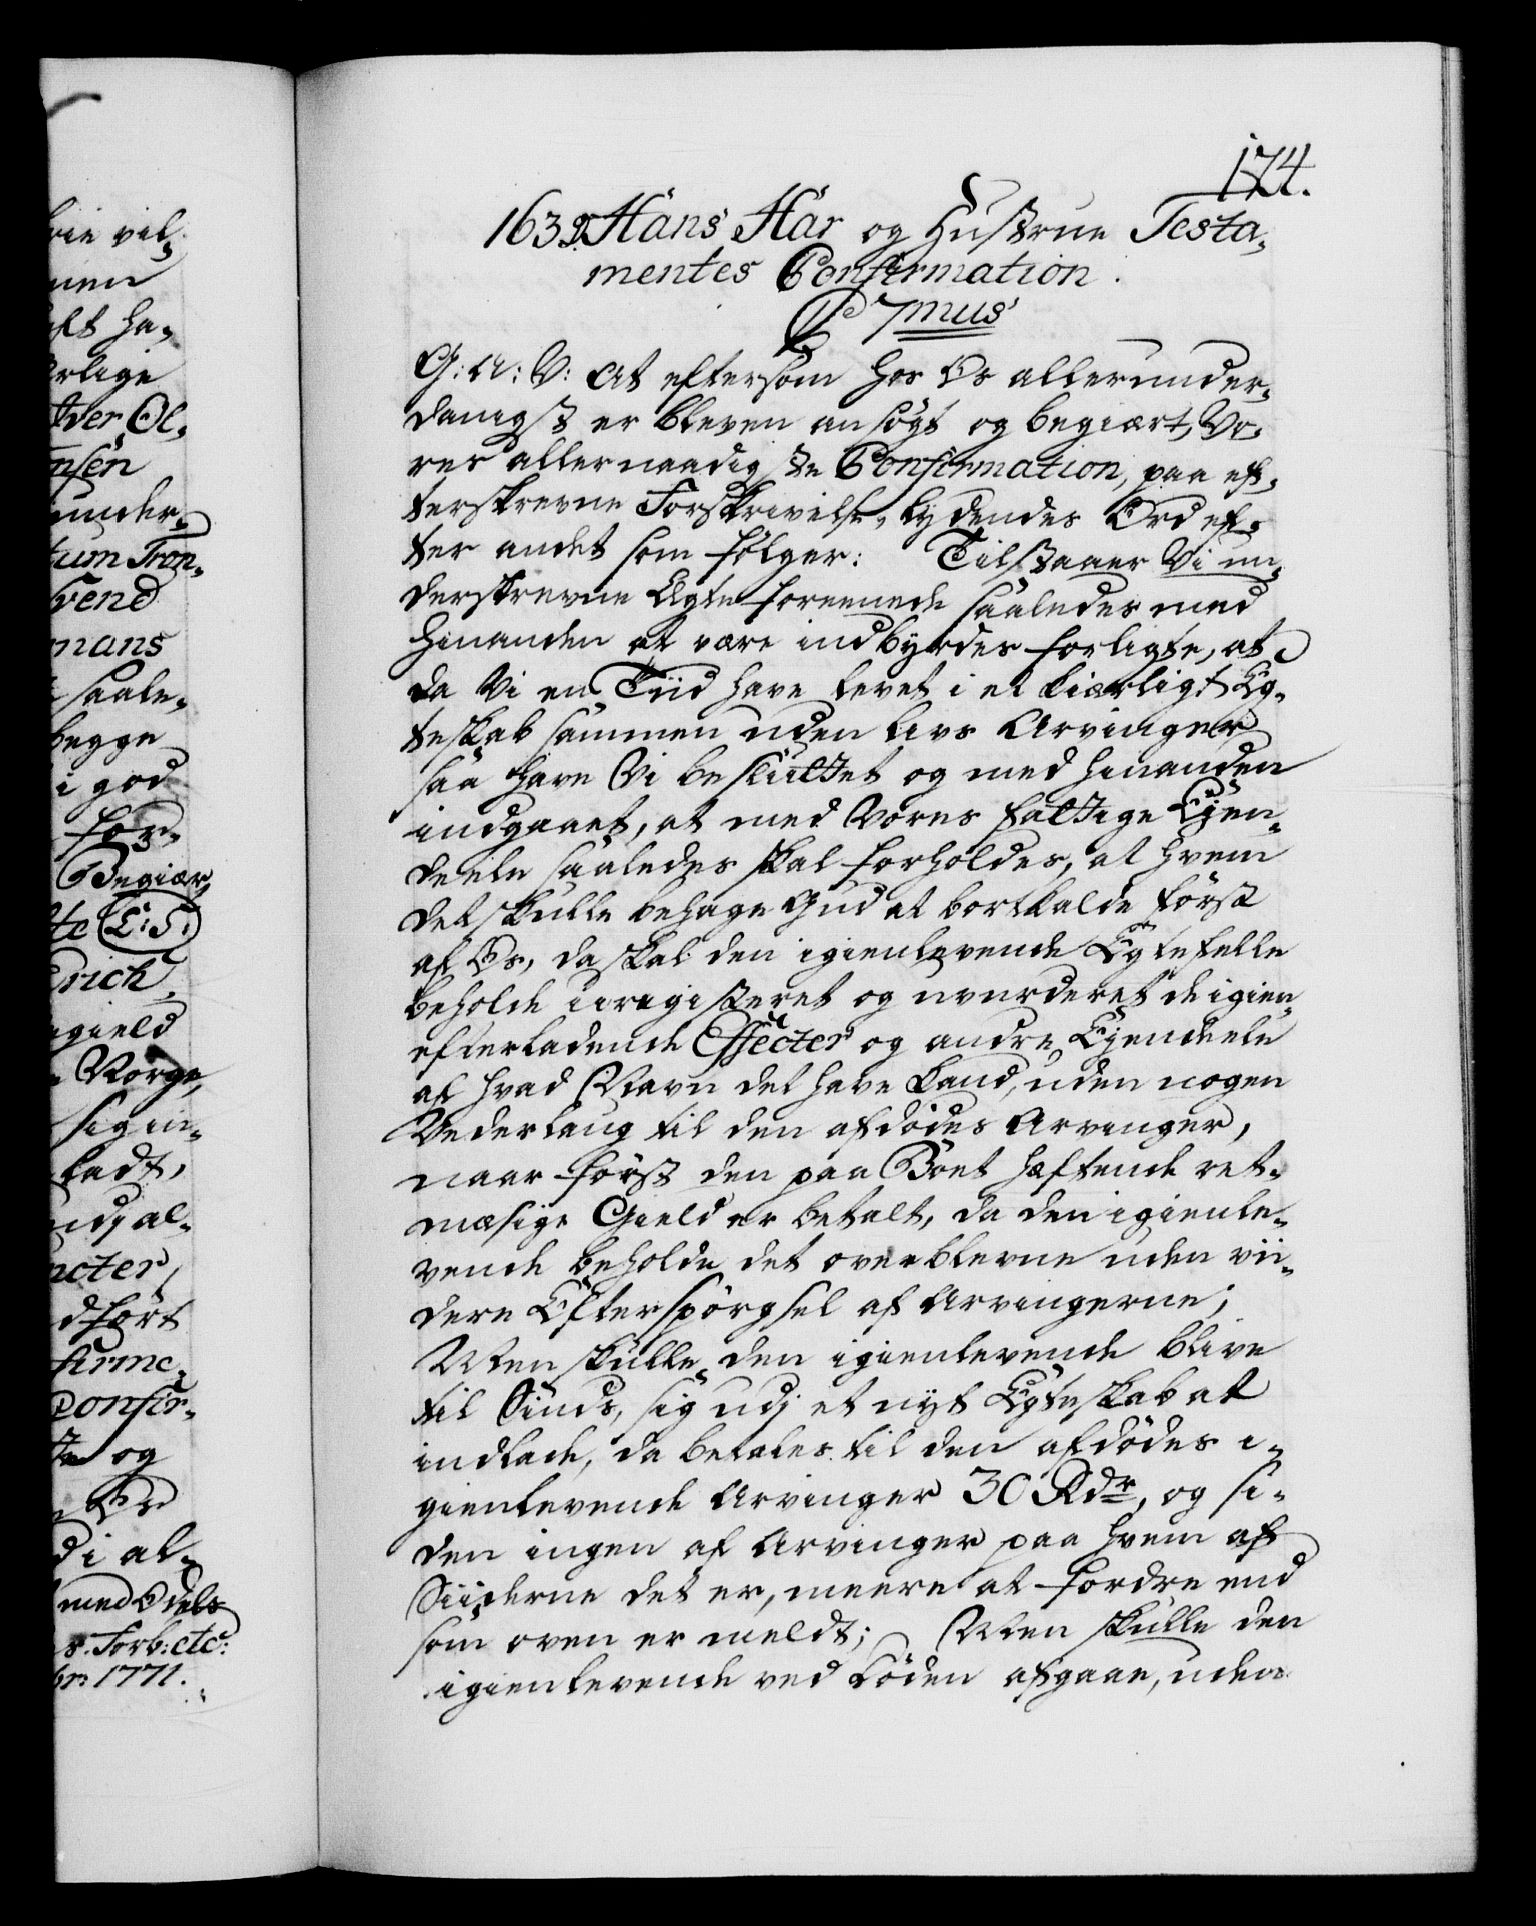 174.
1639. Hans Har og Hustrue Testa-
mentes Confirmation.
C 7mus
G: A: V: At eftersom hos Os allerunder-
danigst er bleven ansøgt og begiært, Vo-
res allernaadigste Confirmation, paa ef-
terskrevne Forskrivelse, lydendes Ord ef-
ter andet som følger: Tilstaaer Vi un-
derskrevne Ægteforeenede saaledes med
hinanden at være indbyrdes forligte, at
da Vi en Tiid have levet i et kiærligt Eg-
teskab sammen uden Livs Arvinger
saa have Vi besluttet og med hinanden
indgaaet, at med Vores fattige Ejen-
deele saaledes skal forholdes, at hvem
det skulle behage Gud at bortkalde først
af Os, da skal den igienlevende Egtefelle
beholde uregisteret og uvurderet de igien-
efterladende Effecter og andre Ejendeele
af hvad Navn det have kand, uden nogen
Vederlaug til den afdødes Arvinger,
naar først den paa Boet hæftende ret-
mæsige Gield er betalt, da den igienle-
vende beholde det overblevne uden vii-
dere Efterspørgsel af Arvingerne;
Men skulle den igienlevende blive
til Sinds, sig udj et nyt Egteskab at
indlade, da betales til den afdødes i-
gienlevende Arvinger 30 Rdr, og si-
den ingen af Arvinger paa hvem af
Siiderne det er, meere at fordre end
som oven er meldt; Men skulle den
igienlevende ved Døden afgaae, uden
vil-
men
ha-
rlige
tver Ol-
nsen
under-
tum Tron-
svend
mans
saale-
begge
i god
for-
Begiær-
te L: S:
Erich
gield
Norge
sig in-
ladt,
udj al-
ncter,
dført
firme-
Confir-
te og
Os
di al-
med Odels
s. Forb: etc:
br: 1771.